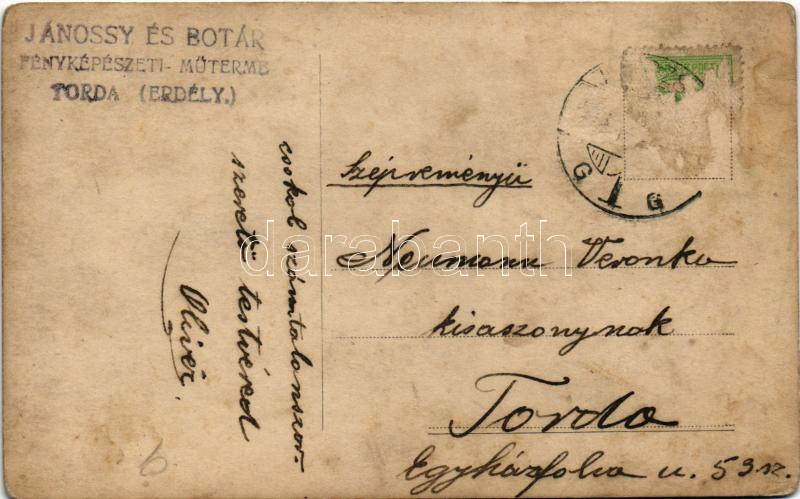 JÁNOSSY ÉS BOTÁR
FÉNYKÉPÉSZETI- MŰTERME
TORDA (ERDÉLY.)
csokol számtalanszor-
szerető testvéred
Olivér
Szépreményű
Neumann Veronka
kisaszonynak
Torda
Egyházfalva u. 53 sz.
darabanth
G G
6